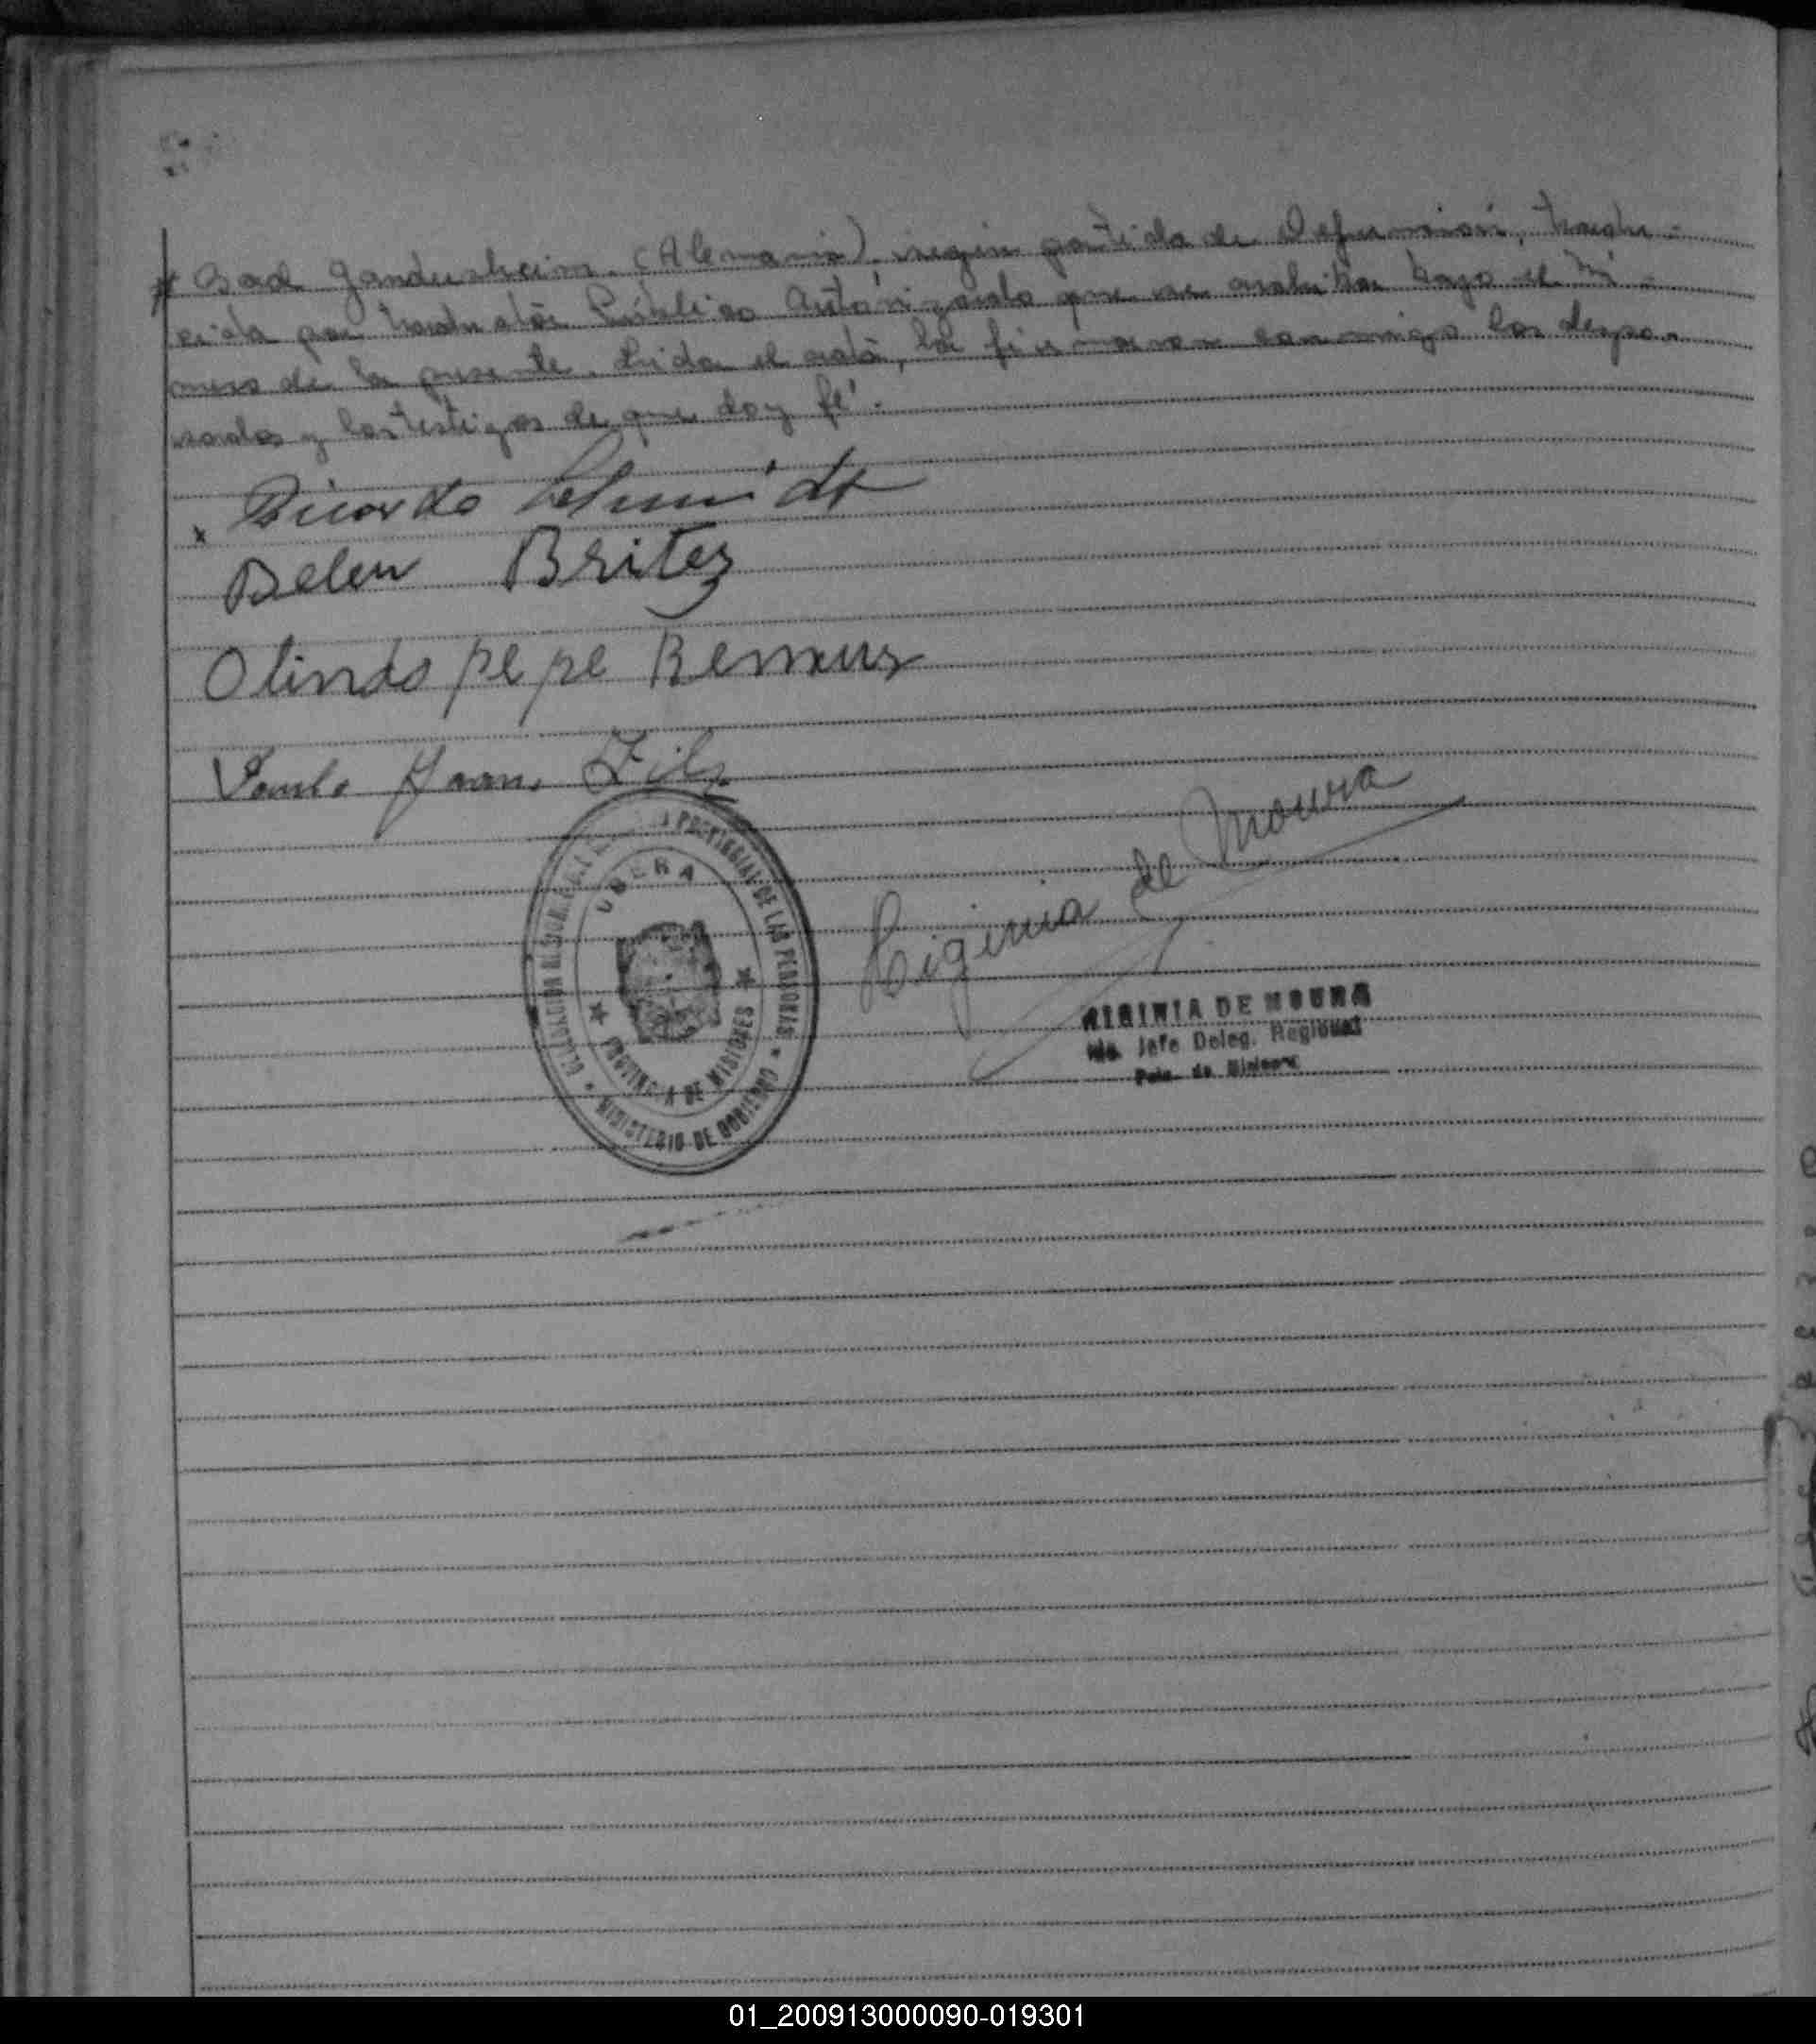 # Bad Gandersheim. (Alemania). según partida de Defunción, tradu-
cida por traductor Público Autorizado que se archiva bajo el Nú-
mero de la presente. Leída el acta, la firmaron conmigo los despo-
sados y los testigos de que doy fé.-
x Ricardo Schmidt
Belen Britez
Olindo pepe
Juan
Higinia de Moura
UBERA
PROVINCIAL DE LAS PERSONAS
PROVINCIA DE MISIONES
MINISTERIO DE GOBIERNO
HIGINIA DE MOURA
Jefe Deleg. Regional
01_200913000090-019301